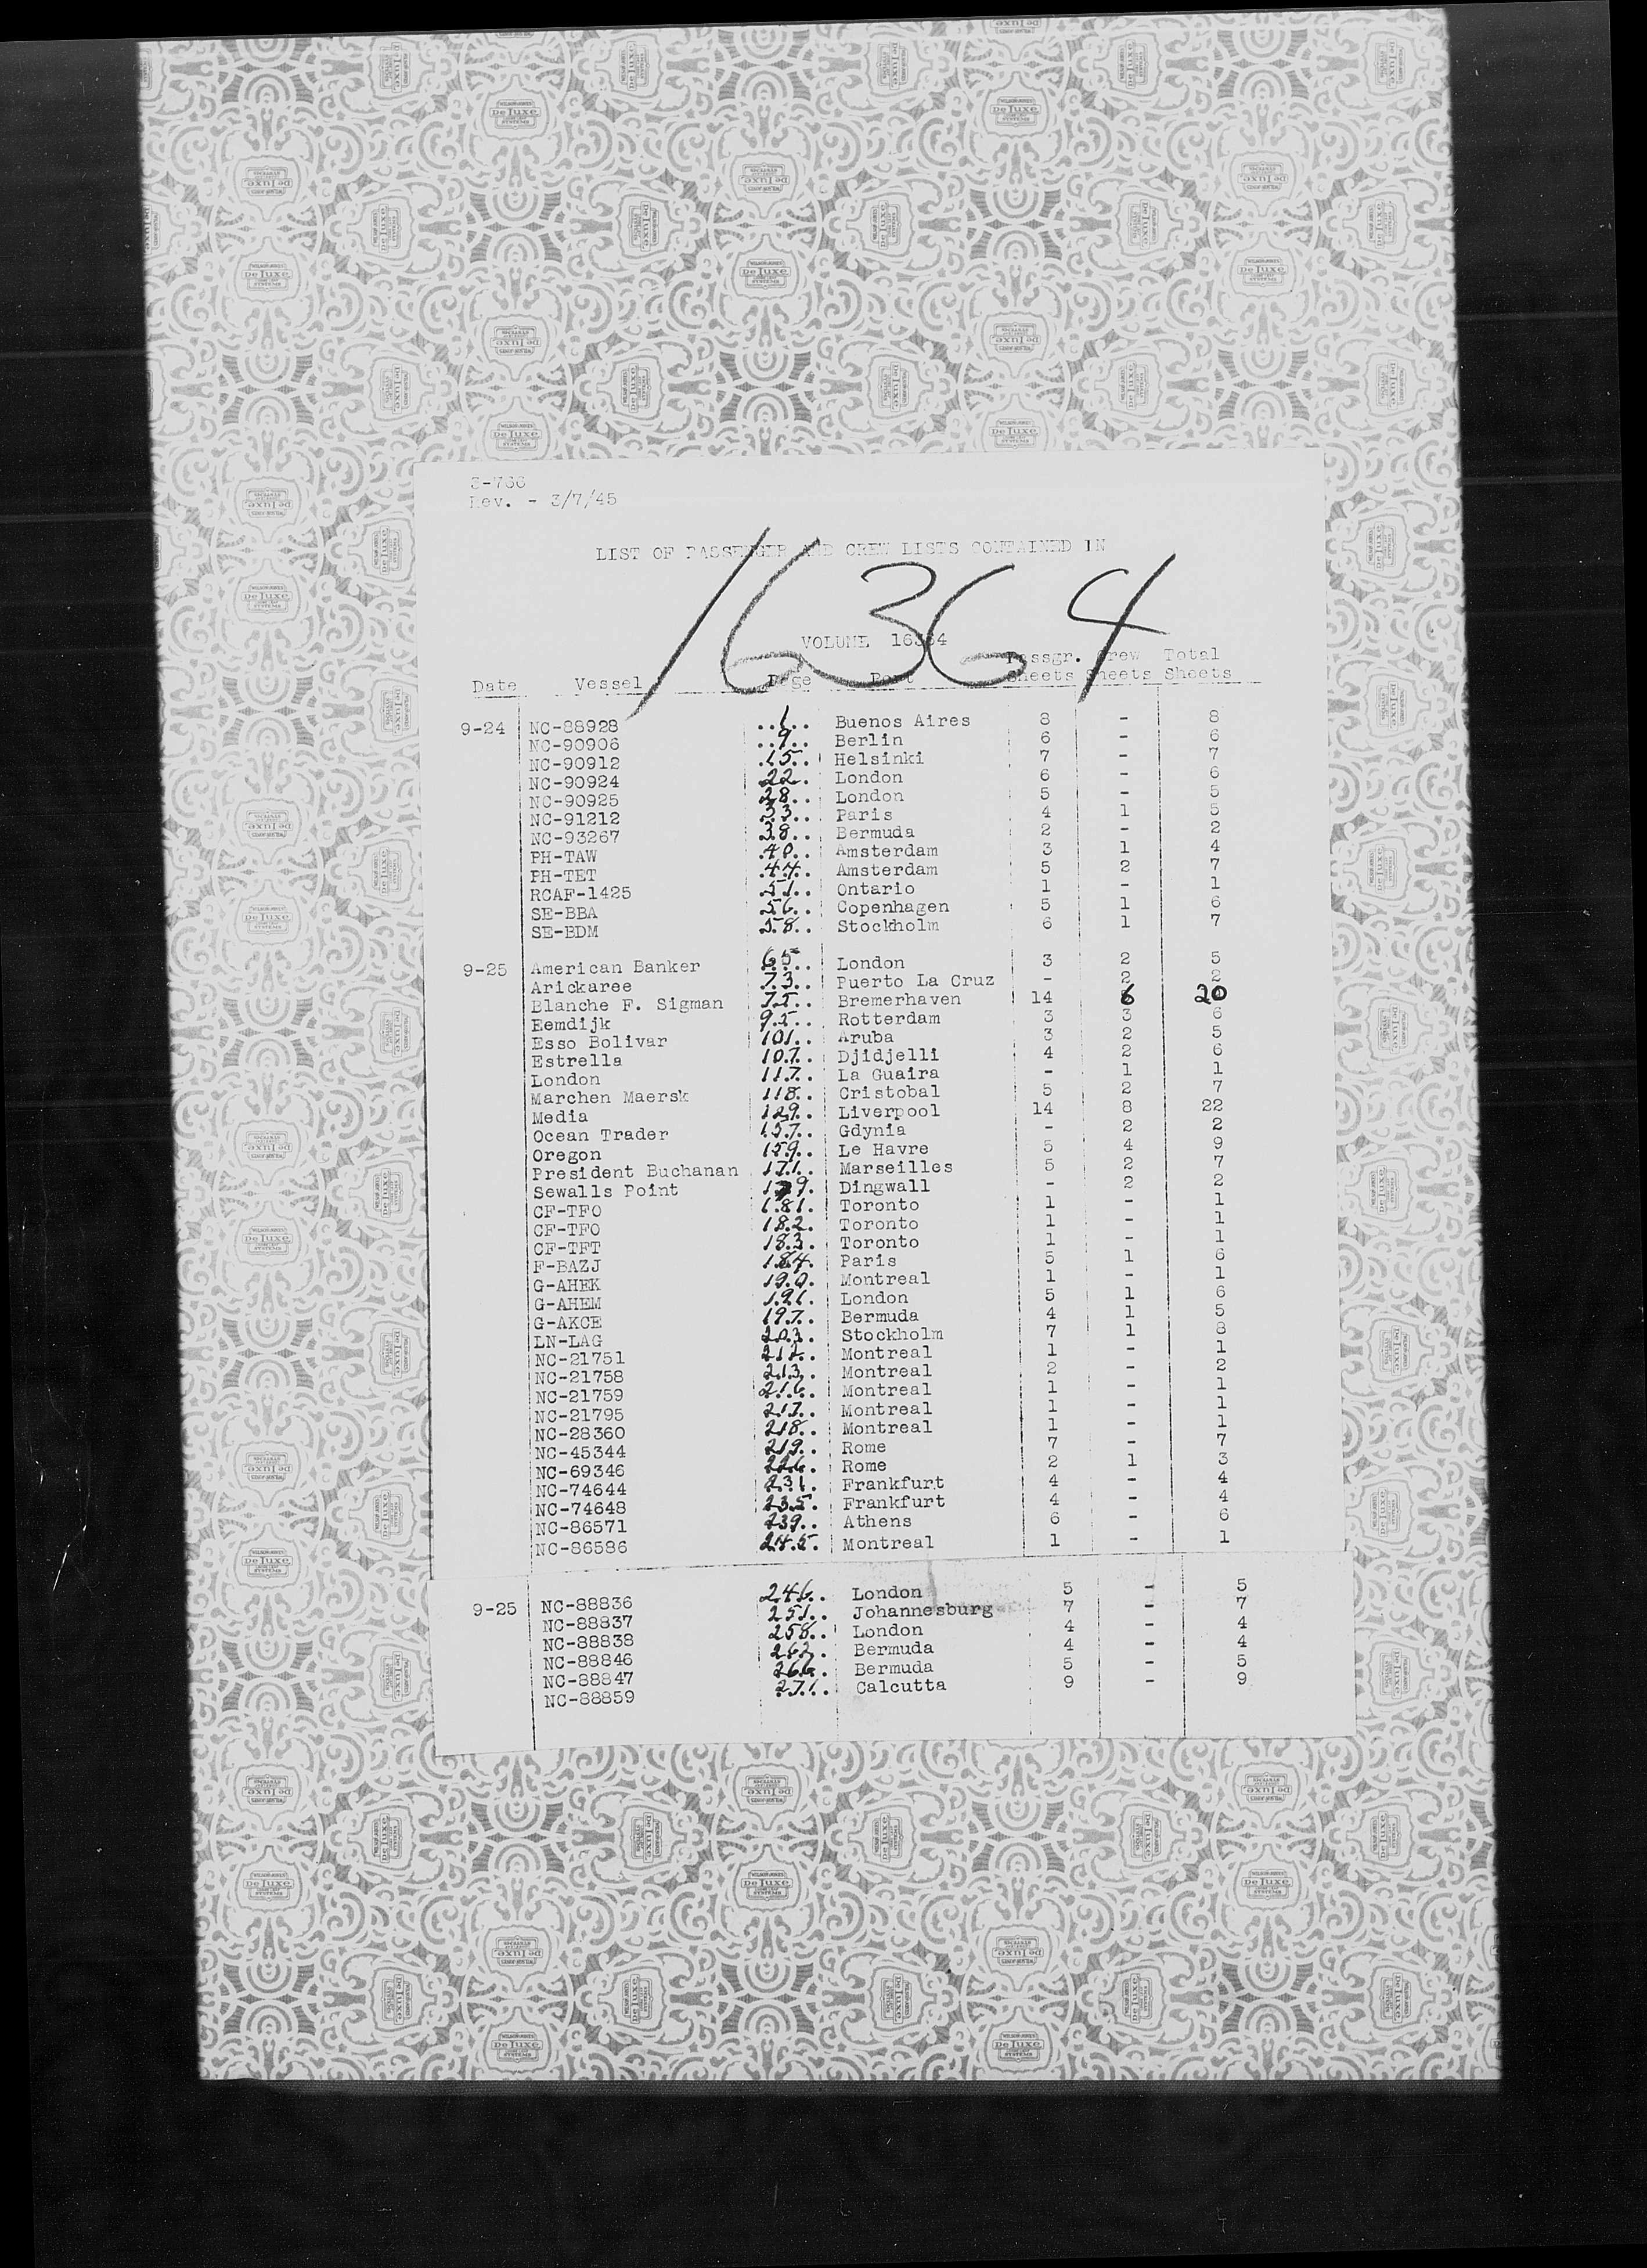 3-766
Rev. - 3/7/45
LIST OF PASSENGER AND CREW LISTS CONTAINED IN
16364
VOLUME 16364
Passgr. Crew Total
Date Vessel Page Port Sheets Sheets Sheets
9-24 NC-88928 ..1.. Buenos Aires 8 - 8
NC-90906 ..9.. Berlin 6 - 6
NC-90912 .15.. Helsinki 7 - 7
NC-90924 22.. London 6 - 6
NC-90925 28.. London 5 - 5
NC-91212 33.. Paris 4 1 5
NC-93267 38.. Bermuda 2 - 2
PH-TAW .40.. Amsterdam 3 1 4
PH-TET 44.. Amsterdam 5 2 7
RCAF-1425 51.. Ontario 1 - 1
SE-BBA 56.. Copenhagen 5 1 6
SE-BDM 58.. Stockholm 6 1 7
9-25 American Banker 65.. London 3 2 5
Arickaree 73.. Puerto La Cruz - 2 2
Blanche F. Sigman 75.. Bremerhaven 14 6 20
Eemdijk 95.. Rotterdam 3 3 6
Esso Bolivar 101.. Aruba 3 2 5
Estrella 107.. Djidjelli 4 2 6
London 117.. La Guaira - 1 1
Marchen Maersk 118.. Cristobal 5 2 7
Media 129.. Liverpool 14 8 22
Ocean Trader 157.. Gdynia - 2 2
Oregon 159.. Le Havre 5 4 9
President Buchanan 171.. Marseilles 5 2 7
Sewalls Point 179. Dingwall - 2 2
CF-TFO 181. Toronto 1 - 1
CF-TFO 182. Toronto 1 - 1
CF-TFT 183. Toronto 1 - 1
F-BAZJ 184. Paris 5 1 6
G-AHEK 190. Montreal 1 - 1
G-AHEM 191. London 5 1 6
G-AKCE 197. Bermuda 4 1 5
LN-LAG 203. Stockholm 7 1 8
NC-21751 212.. Montreal 1 - 1
NC-21758 213.. Montreal 2 - 2
NC-21759 216.. Montreal 1 - 1
NC-21795 217.. Montreal 1 - 1
NC-28360 218.. Montreal 1 - 1
NC-45344 219.. Rome 7 - 7
NC-69346 226. Rome 2 1 3
NC-74644 231. Frankfurt 4 - 4
NC-74648 235. Frankfurt 4 - 4
NC-86571 239.. Athens 6 - 6
NC-86586 245. Montreal 1 - 1
9-25 NC-88836 246.. London 5 - 5
NC-88837 251.. Johannesburg 7 - 7
NC-88838 258.. London 4 - 4
NC-88846 262. Bermuda 4 - 4
NC-88847 266. Bermuda 5 - 5
NC-88859 271.. Calcutta 9 - 9